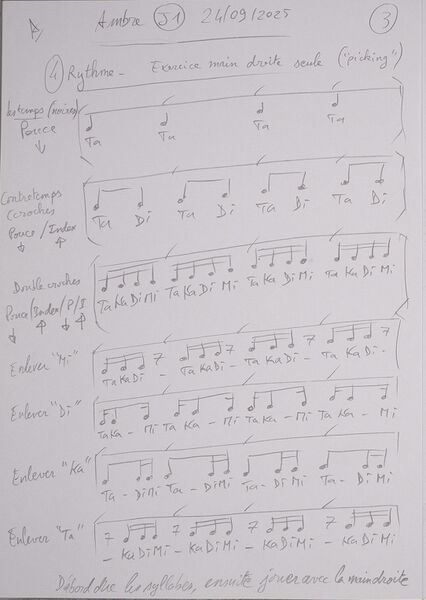 Ambre J1 24/09/2025 3
4 Rythme - Exercice main droite seule ("picking")
les temps (noires)
Pouce
Ta Ta Ta Ta
Contretemps
Croches
Pouce / Index
Ta Di Ta Di Ta Di Ta Di
Double croches
Pouce/Index/P/I
Ta Ka Di Mi Ta Ka Di Mi Ta Ka Di Mi Ta Ka Di Mi
Enlever "Mi"
Ta Ka Di - Ta Ka Di - Ta Ka Di - Ta Ka Di -
Enlever "Di"
Ta Ka - Mi Ta Ka - Mi Ta Ka - Mi Ta Ka - Mi
Enlever "Ka"
Ta - Di Mi Ta - Di Mi Ta - Di Mi Ta - Di Mi
Enlever "Ta"
- Ka Di Mi - Ka Di Mi - Ka Di Mi - Ka Di Mi
D'abord dire les syllabes, ensuite jouer avec la main droite